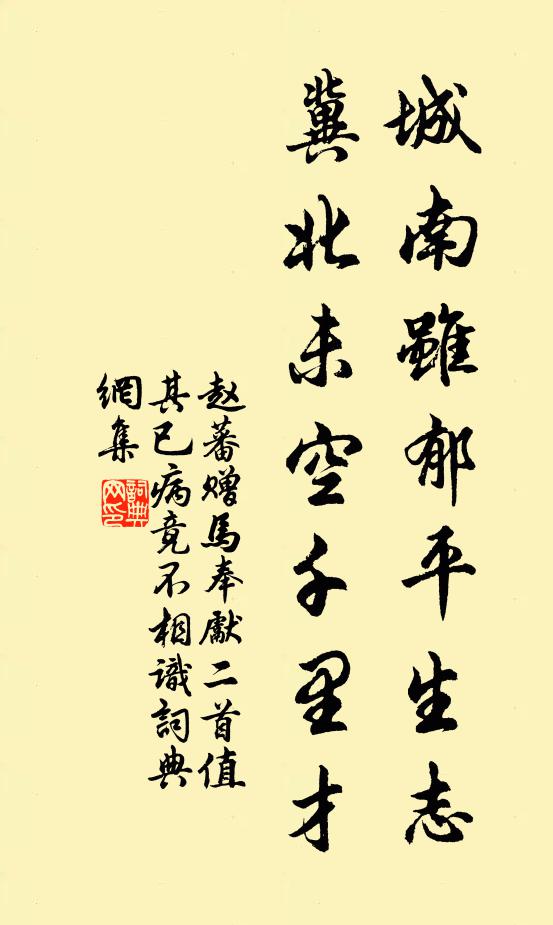 城南雖郁平生志
冀北未空千里才
赵蕃赠馬奉獻二首值
其已病竟不相識詞典
網集
詞典
网印